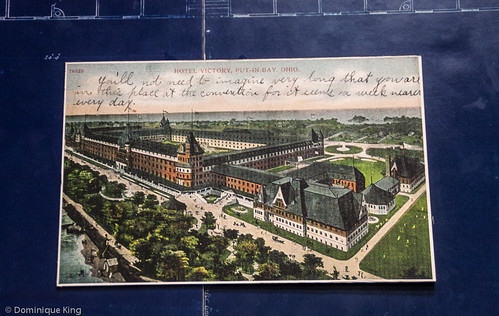 HOTEL VICTORY, PUT-IN-BAY, OHIO.
You'll not need to imagine very long that you are
in this place at the convention for it comes a week nearer
every day.
© Dominique King